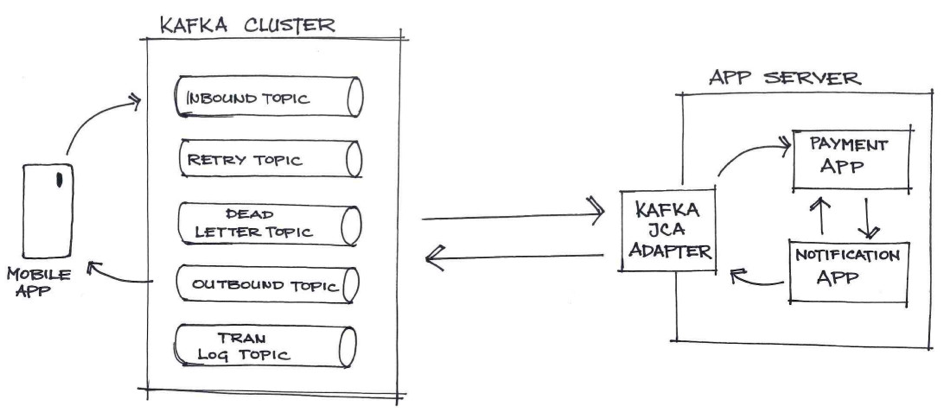 KAFKA CLUSTER
INBOUND TOPIC
RETRY TOPIC
DEAD
LETTER TOPIC
OUTBOUND TOPIC
TRAN
LOG TOPIC
MOBILE
APP
APP SERVER
KAFKA
JCA
ADAPTER
PAYMENT
APP
NOTIFICATION
APP